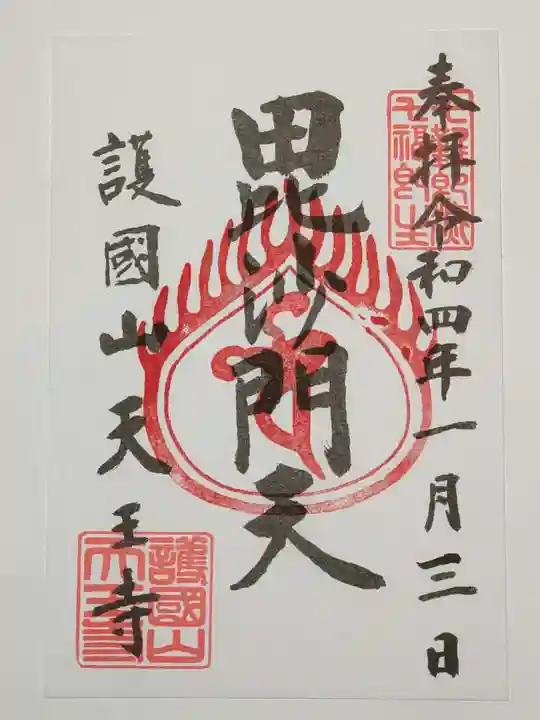 奉拝 令和四年一月三日
毘沙門天
護國山天王寺
護國山
天王寺